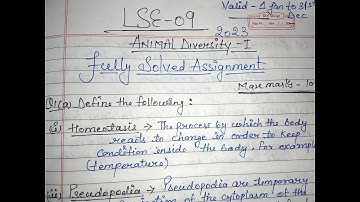 LSE-09
Valid - 1 Jan to 31st
Dec
2023
ANIMAL Diversity-I
Fully Solved Assignment
Max marks - 10
Q1(a) Define the following:
(i) Homeotasis → The process by which the body
reacts to change in order to keep
condition inside the body, for example
(temperature)
Pseudopodia → Pseudopodia are temporary
of the cytoplasm of the